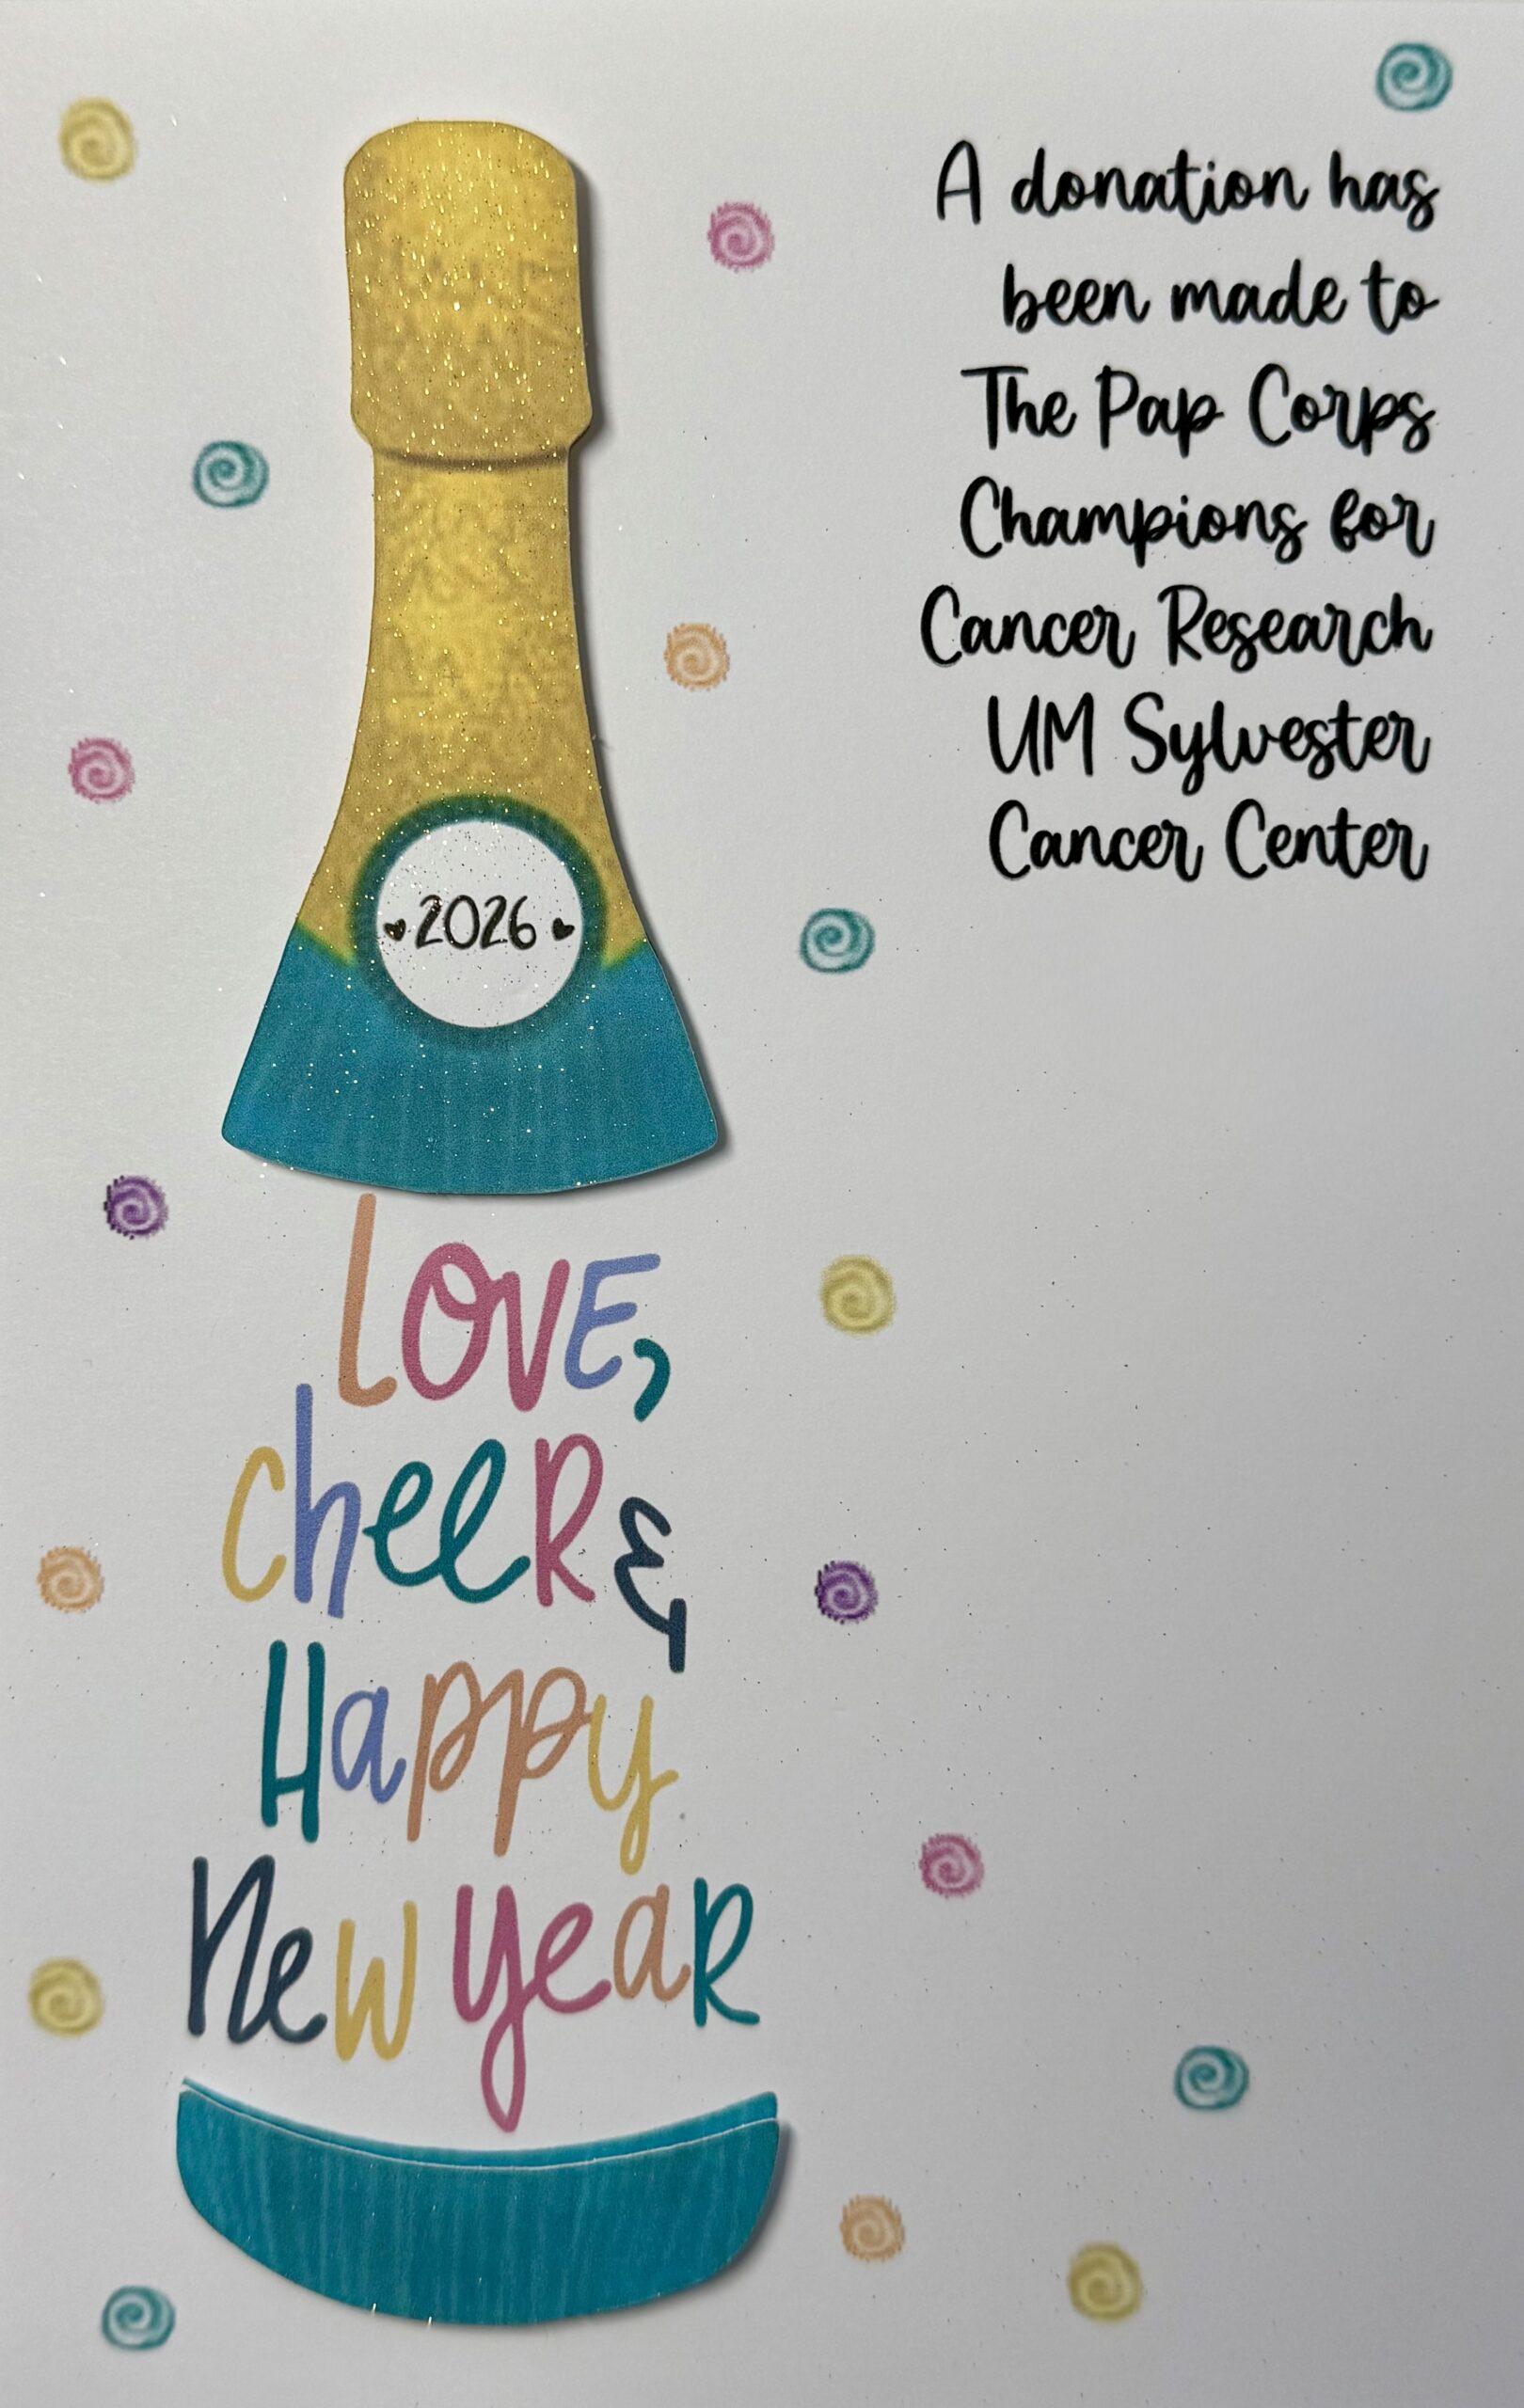 A donation has
been made to
The Pap Corps
Champions for
Cancer Research
UM Sylvester
Cancer Center
2026
Love,
cheer &
Happy
New year